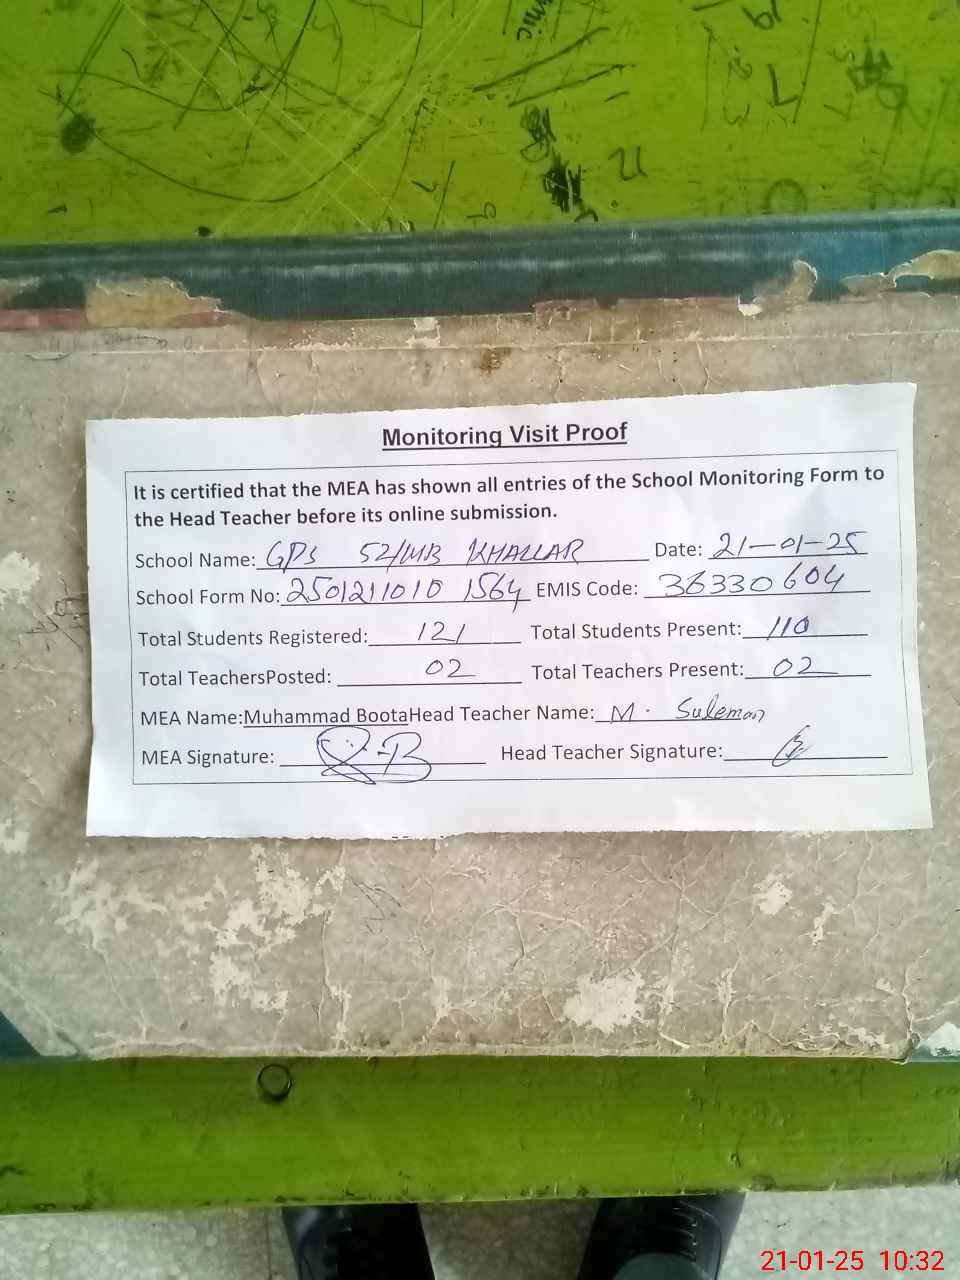 Monitoring Visit Proof
It is certified that the MEA has shown all entries of the School Monitoring Form to
the Head Teacher before its online submission.
School Name: GPS 52/MB KHALLAR Date: 21-01-25
School Form No: 2501211010 1564 EMIS Code: 36330604
Total Students Registered: 121 Total Students Present: 110
Total TeachersPosted: 02 Total Teachers Present: 02
MEA Name:Muhammad BootaHead Teacher Name: M. Suleman
MEA Signature: Head Teacher Signature:
21-01-25 10:32